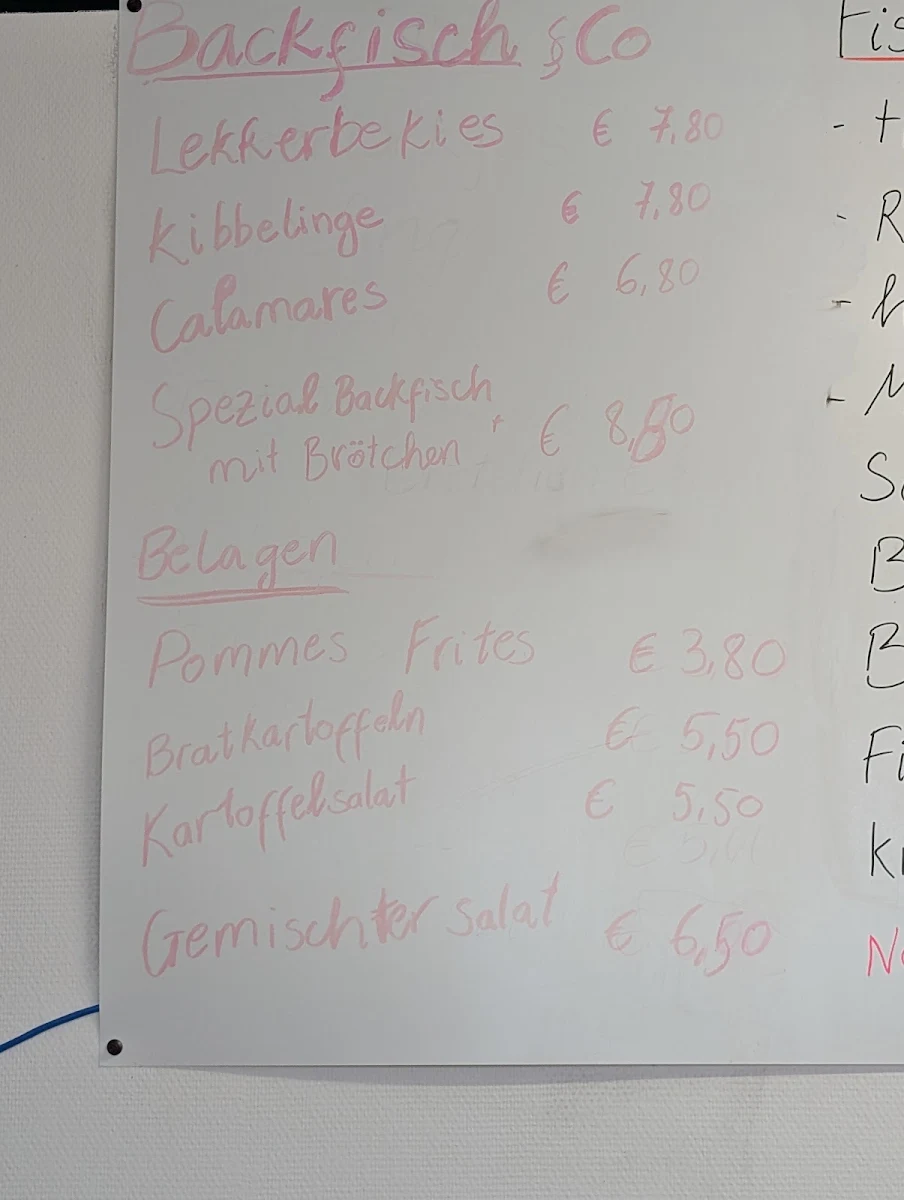 Backfisch & Co
Lekkerbekies € 7,80
Kibbelinge € 7,80
Calamares € 6,80
Spezial Backfisch
mit Brötchen € 8,80
Belagen
Pommes Frites € 3,80
Bratkartoffeln € 5,50
Kartoffelsalat € 5,50
Gemischter Salat € 6,50
Fis
- H
- R
-
- M
So
B
B
Fi
Kr
No